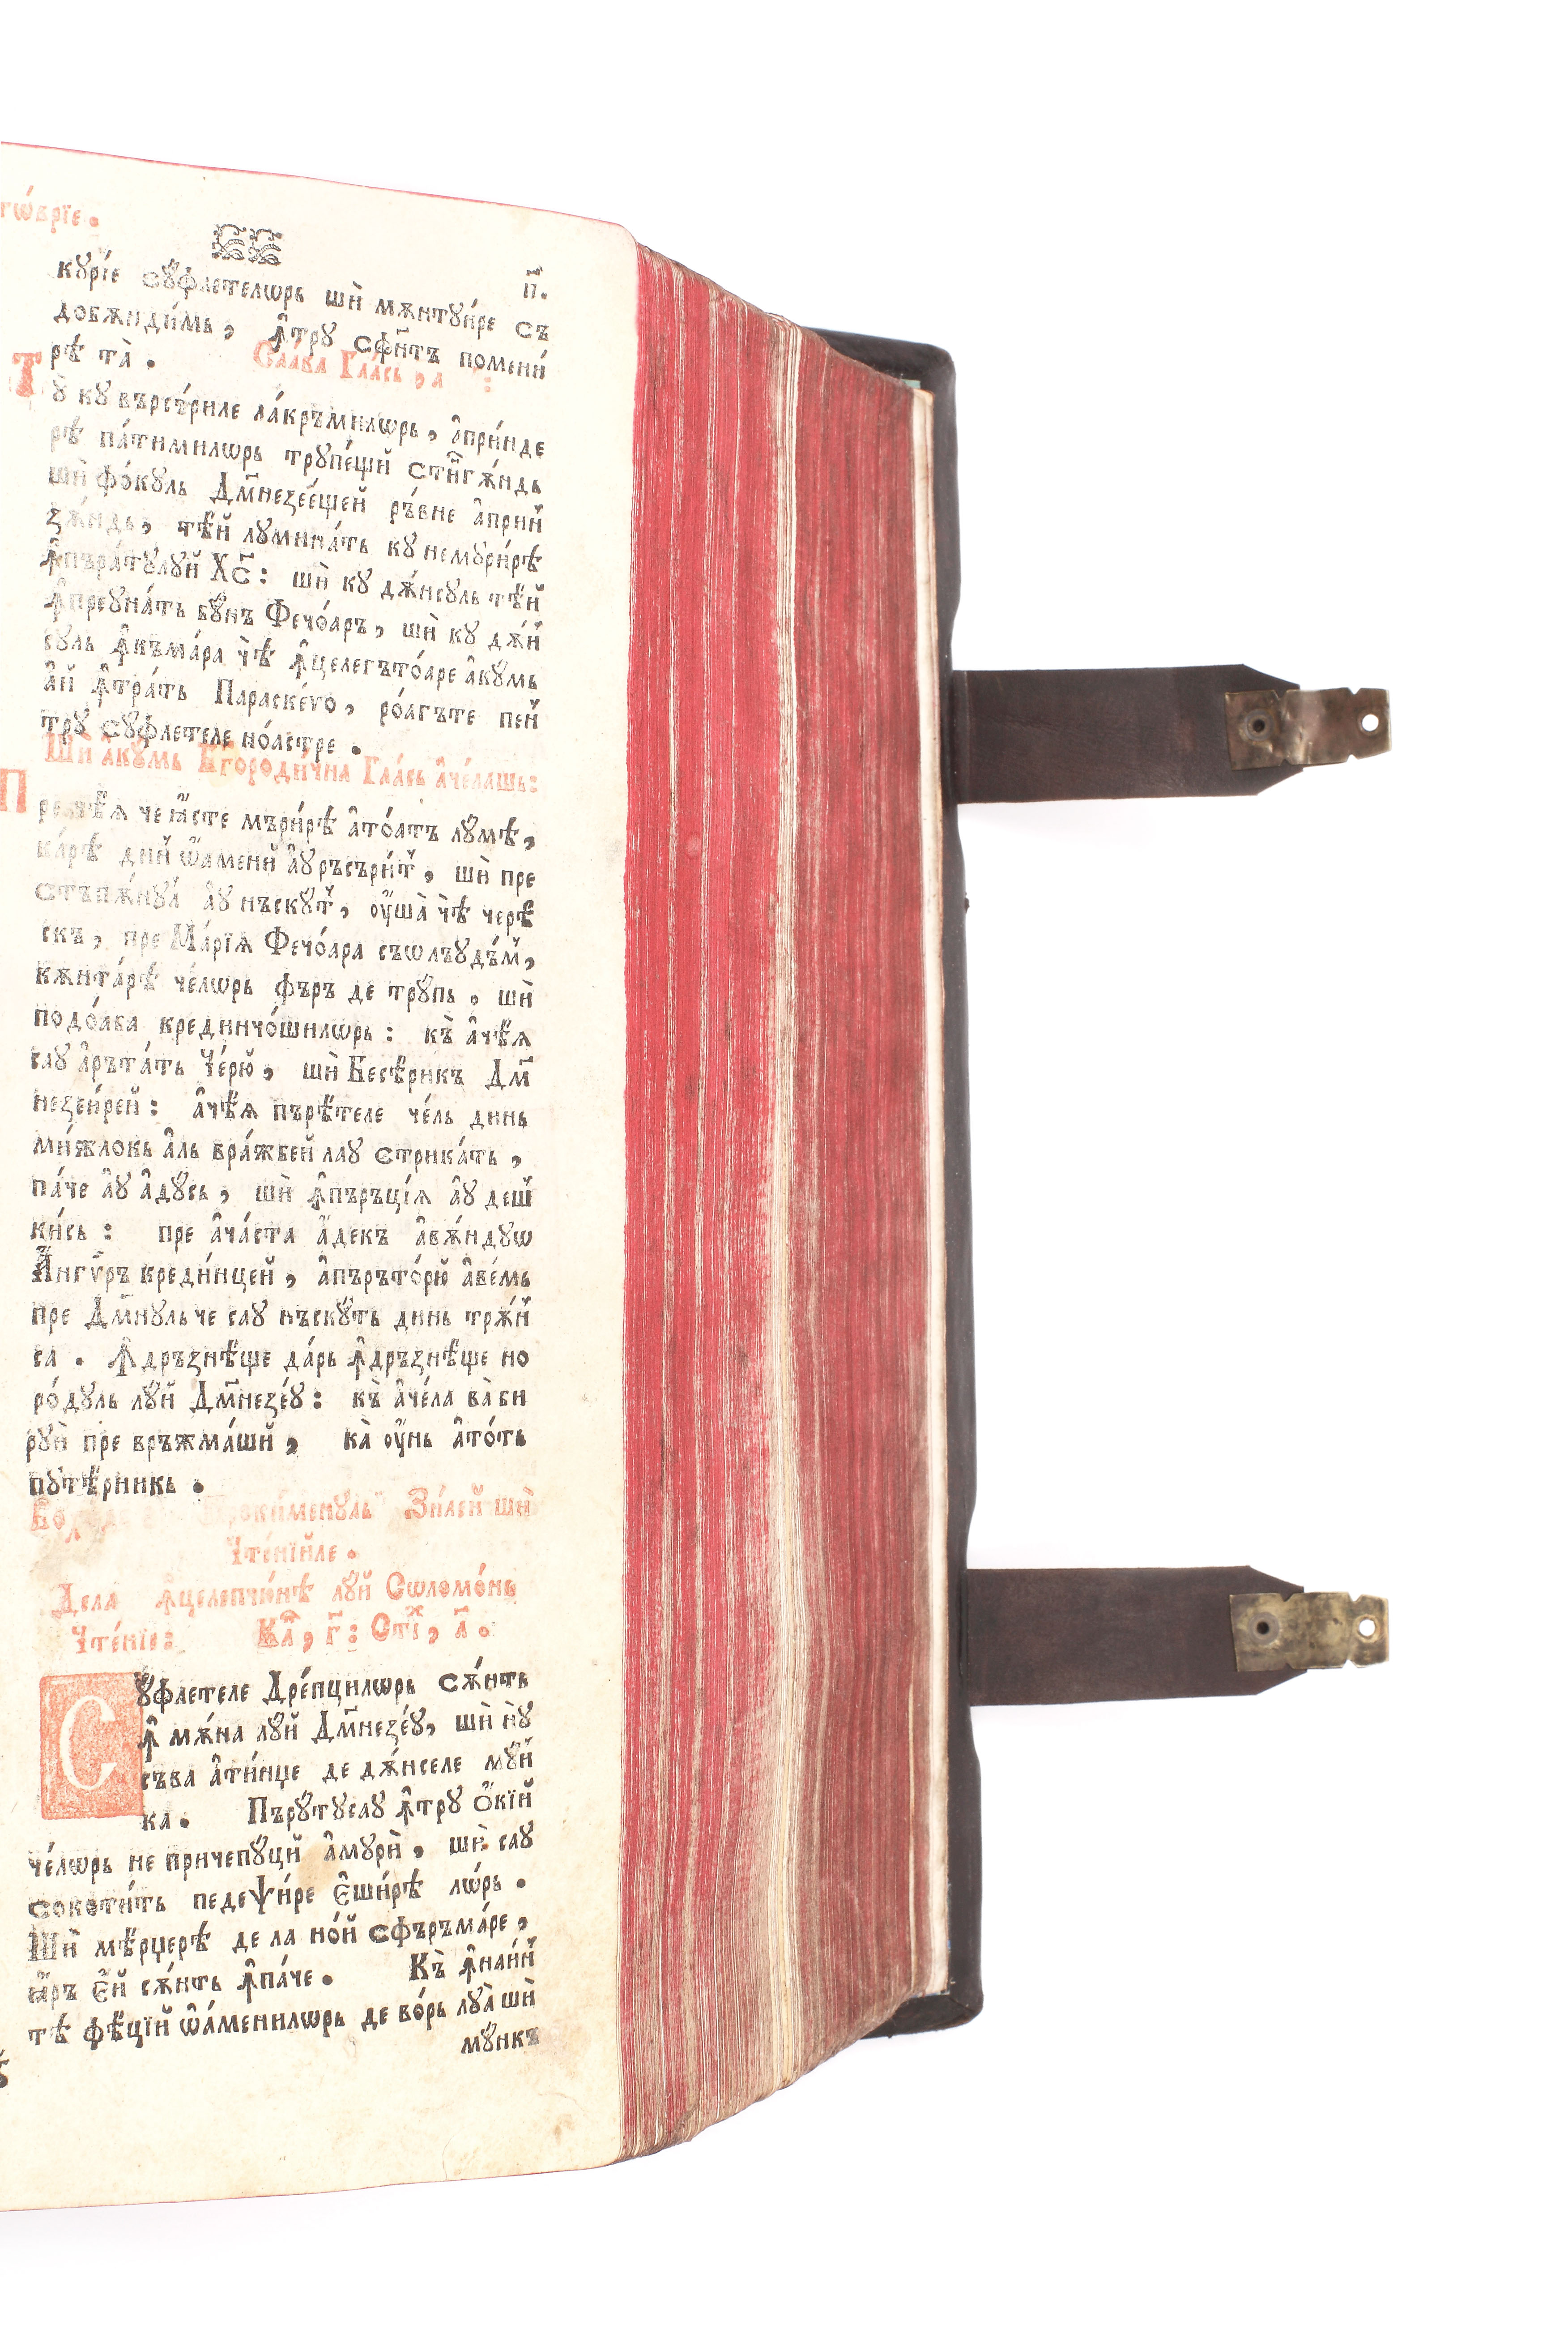 гѡ́врїе.
п҃.
кꙋрі́е сꙋ́флетелѡрь шѝ мѫнтꙋи́ре съ
добѫнди́мь, ꙟ҆трꙋ сфн҃тъ помени
рѣ́ та̀. Сла́ва Гла́сь, а :
Т
ꙋ̀ кꙋ върсъ́риле ла́кръмилѡрь, а҆при́нде
рѣ́ па́тимилѡрь трꙋпе́щй стингѫ́ндь
шѝ фо́кꙋль Дм҃незее́щей ръ́вне а҆прин
зѫ́ндь, тѣ́й лꙋмина́ть кꙋ немꙋри́рѣ
ꙟ҆пъра́тꙋлꙋй Хс҃: шѝ кꙋ дѫ́нсꙋль тѣ́й
ꙟ҆преꙋна́ть бꙋ́нъ Фечоа́ръ, шѝ кꙋ дѫ́н
сꙋль ꙟ҆къма́ра чѣ̀ ꙟ҆целегъто́аре а҆кꙋмь
а҆й ꙟ҆тра́ть Параске́ѵо, ро́агъте пен
трꙋ сꙋ́флетеле но́астре.
Шѝ а҆кꙋ́мь Бг҃ороди́чна Гла́сь а҆че́лашь:
П
ре че́ѧ че ꙗ҆́сте мъри́рѣ а҆то́атъ лꙋ́мѣ,
ка́рѣ дин ѡ҆́аменй а҆ꙋ ръсъри́т, шѝ пре
Стъпѫ́нꙋл а҆ꙋ нъскꙋ́т, ᲂу҆ша̀ чѣ̀ черѣ
скъ, пре Мáрїѧ Фечо́ара съѡ лъꙋдъ́м,
кѫнта́рѣ че́лѡрь фъръ де трꙋ́пь. шѝ
подо́аба крединчо́шилѡрь: къ̀ а҆чѣ́ѧ
саꙋ а҆ръта́ть Че́рю, шѝ Бесѣ́рикъ Дм҃
незеи́рей: а҆чѣ́ѧ пърѣ́теле че́ль динь
ми́жлокь а҆ль вра́жбей лаꙋ стрика́ть,
па́че а҆ꙋ а҆дꙋ́сь, шѝ ꙟ҆пъръці́ѧ а҆ꙋ деш
ки́сь: пре а҆ча́ста а҆́декъ а҆вѫ́ндꙋѡ
А҆́нгѵ́ръ креди́нцей, а҆пъръто́рю а҆ве́мь
пре Дм҃нꙋль че саꙋ нъскꙋ́ть динь трѫ́н
са. Ꙟ҆дръзнѣ́ще да́рь ꙟ҆дръзнѣ́ще но
ро́дꙋль лꙋ́й Дм҃незе́ꙋ: къ̀ а҆че́ла ва̀ би
рꙋѝ пре връжма́шй, ка̀ ᲂу҆́нь а҆то́ть
пꙋтѣ́рникь.
Прокименꙋль Зи́лей шѝ
Чте́нїйле.
Дела ꙟ҆целепчю́нѣ лꙋй Сѡломо́нь
Чте́нїе: Кл҃, г҃: Сті҃, а҃.
С
ꙋ́флетеле Дре́пцилѡрь сѫ́нть
ꙟ҆ мѫ́на лꙋ́й Дм҃незе́ꙋ, шѝ нꙋ̀
съва а҆ти́нџе де дѫ́нселе мꙋ́н
ка. Пърꙋ́тꙋсаꙋ ꙟ҆трꙋ ѻ҆́кїй
че́лѡрь не причепꙋ́цй а҆мꙋрѝ, шѝ саꙋ
сокоти́ть педеѱи́ре є҆ши́рѣ лѡ́рь.
Шѝ мѣ́рџерѣ де ла но́й сфъръма́ре,
ꙗ҆́ръ є҆́й сѫ́нть ꙟ҆па́че. Къ̀ ꙟ҆наи́н
тѣ́ фѣ́цїй ѡ҆́аменилѡрь де во́рь лꙋа̀ шѝ
мꙋ́нкъ